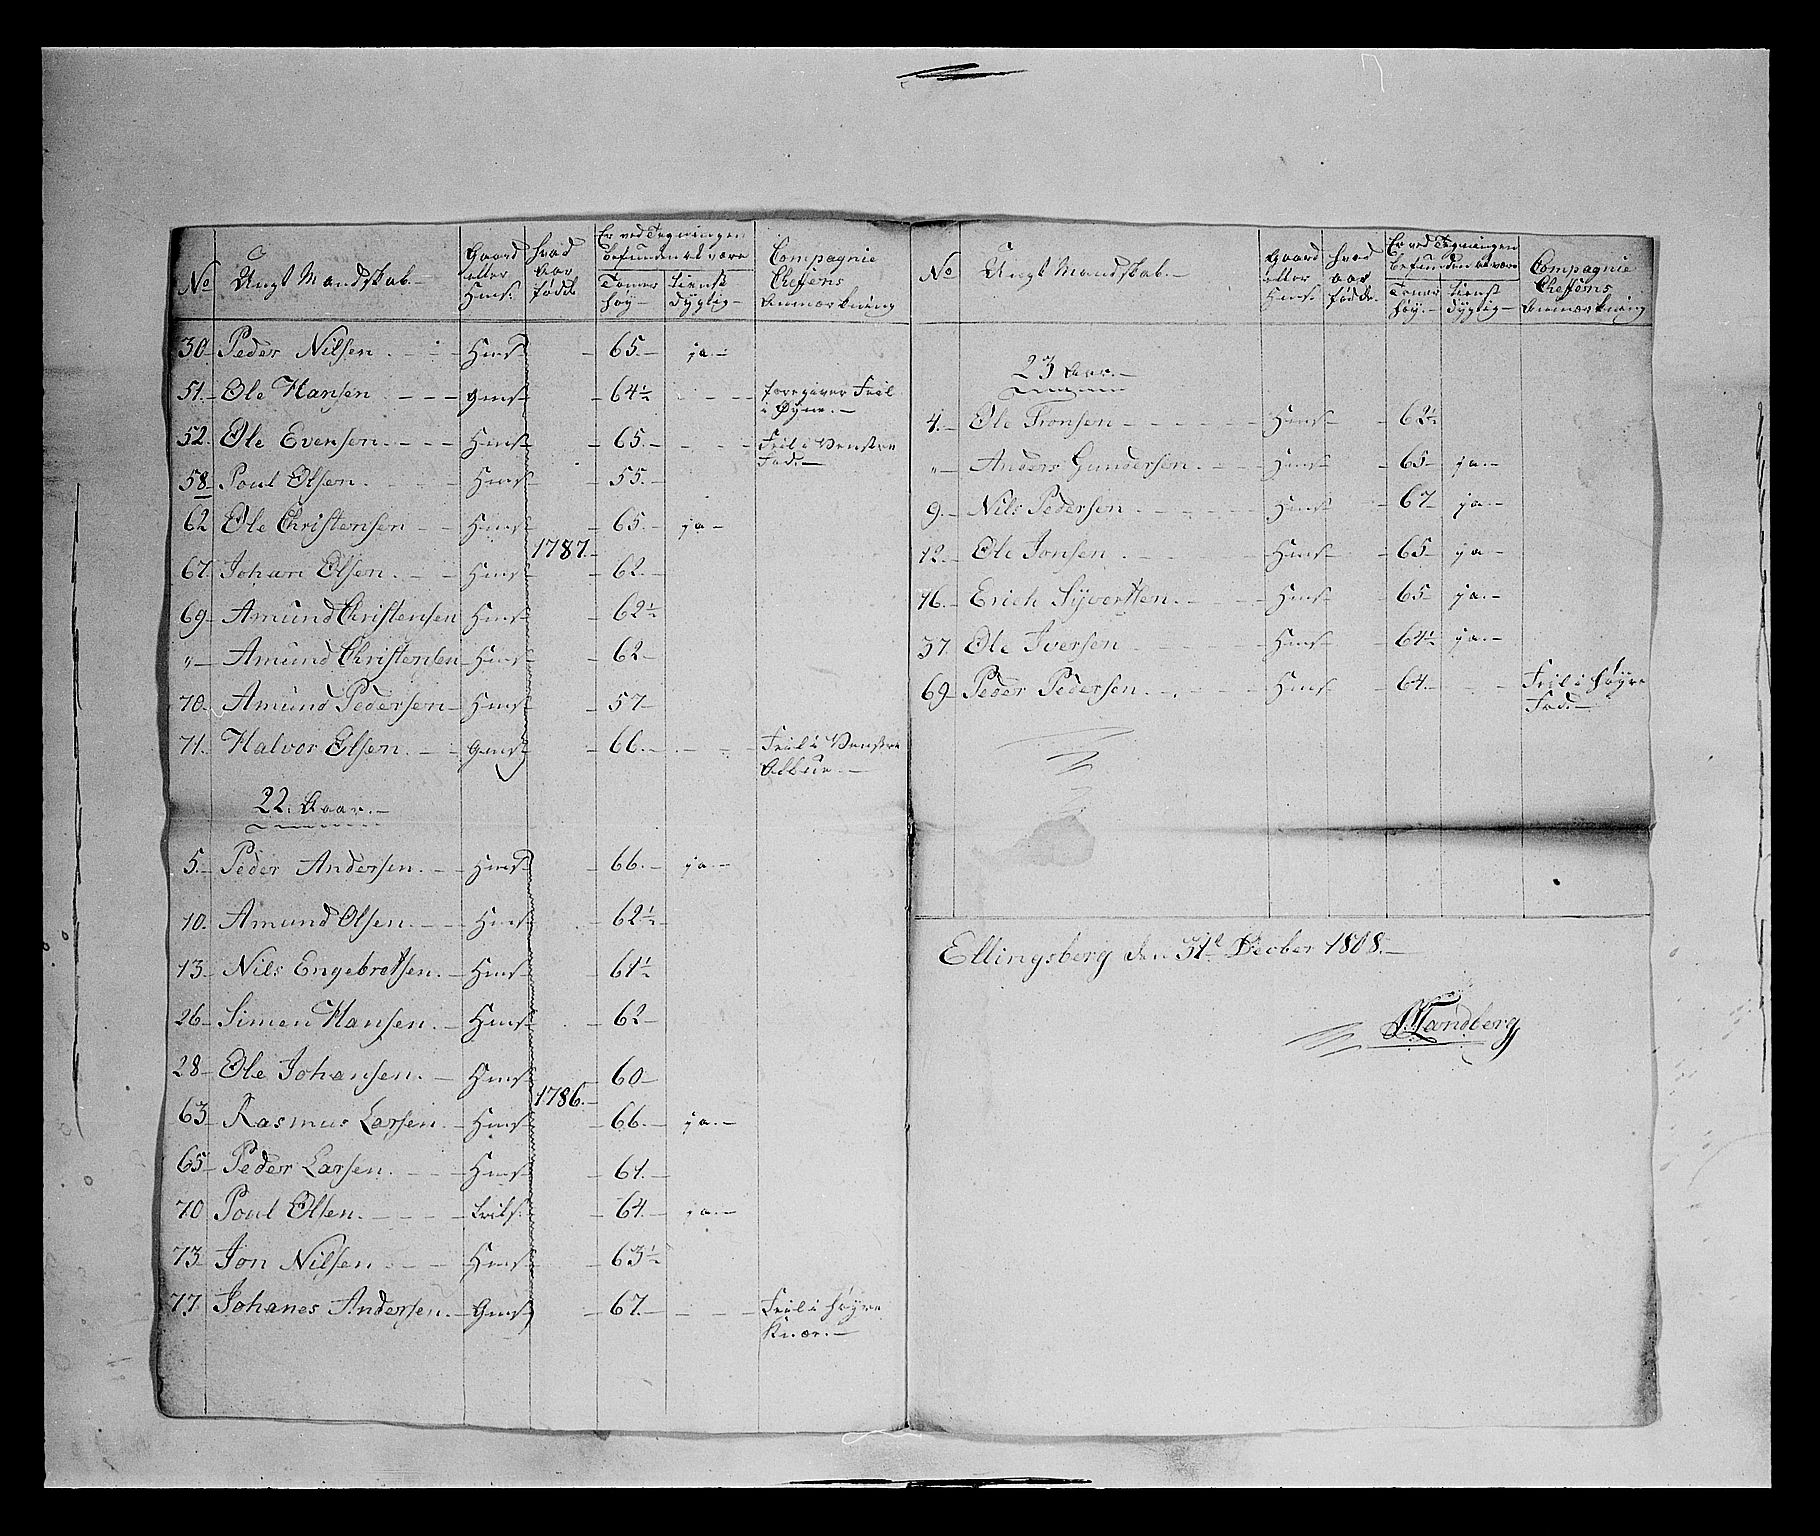 No Ungt Mandskab. Gaard eller Huus. hvad Aar fødde. Er ved Tegningen befunden at være Tomer høy tienst dygtig Compagnie Cheffens Anmærkning
30 Peder Nilsen. Huus 65. ja.
51. Ole Hansen 64½ foregiver Feil
i Øyne.
52. Ole Evensen. Huus 65. Feil i Venstre
Fod.
58 Poul Olsen. Huus 55.
62 Ole Christensen Huus 65. ja
1787.
67. Johan Olsen. Huus 62.
69 Amund Christensen Huus 62½
" Amund Christensen Huus 62.
70. Amund Pedersen Huus 57
71. Halvor Olsen. 66. Feil i Venstre
Albue.
22. Aar.
5. Peder Andersen. Huus 66. ja.
10. Amund Olsen. Huus 62½
13. Nils Engebretsen. Huus 61½
26 Simen Hansen. Huus 62
28 Ole Johansen. Huus 60
1786.
63 Rasmus Larsen. Huus 66. ja.
65 Peder Larsen. Huus 61.
70 Poul Olsen. 64. ja.
73 Jon Nilsen Huus 63½
77 Johanes Andersen. 67. Feil i høyre
Knæe.
No Ungt Mandskab. Gaard eller Huus. hvad Aar fødde. Er ved Tegningen befunden at være Tomer høy. tienst dygtig Compagnie Cheffens Anmærkning
23 Aar.
4. Ole Tronsen Huus 62½
" Anders Gundersen. Huus 65 ja.
9. Nils Pedersen Huus 67 ja.
12. Ole Jonsen Huus 65 ja.
16. Erich Syvertsen. Huus 65 ja.
37 Ole Iversen Huus 64½ ja.
69 Peder Pedersen Huus 64. Feil i høyre
Fod.
Ellingsberg den 31t Decber 1808.
Sandberg